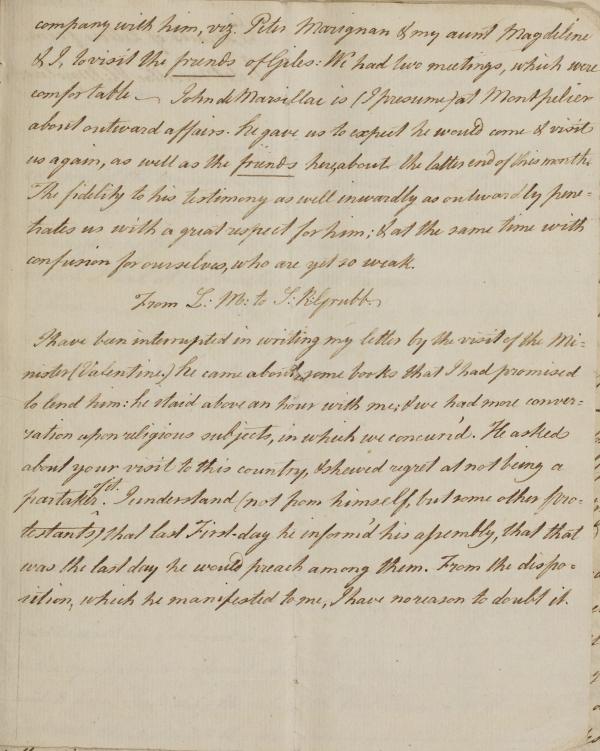 company with him, viz. Peter Marignan & my aunt Magdeline
& I, to visit the friends of Giles: We had two meetings, which were
comfortable — John de Marsillac is (I presume) at Montpelier
about outward affairs. he gave us to expect he would come & visit
us again, as well as the friends hereabout the latter end of this month.
The fidelity to his testimony as well inwardly as outwardly pene-
trates us with a great respect for him; & at the same time with
confusion for ourselves, who are yet so weak.
From L: M: to S: R: Grubb.
I have been interrupted in writing my letter by the visit of the Mi-
nister (Valentine.) he came about some books that I had promised
to lend him: he staid above an hour with me; & we had more conver-
zation upon religious subjects, in which we concur'd. He asked
about your visit to this country, & shewed regret at not being a
partaker of it. I understand (not from himself, but some other pro-
testants) that last First-day he inform'd his assembly, that that
was the last day he would preach among them. From the dispo-
sition, which he manifested to me, I have no reason to doubt it.